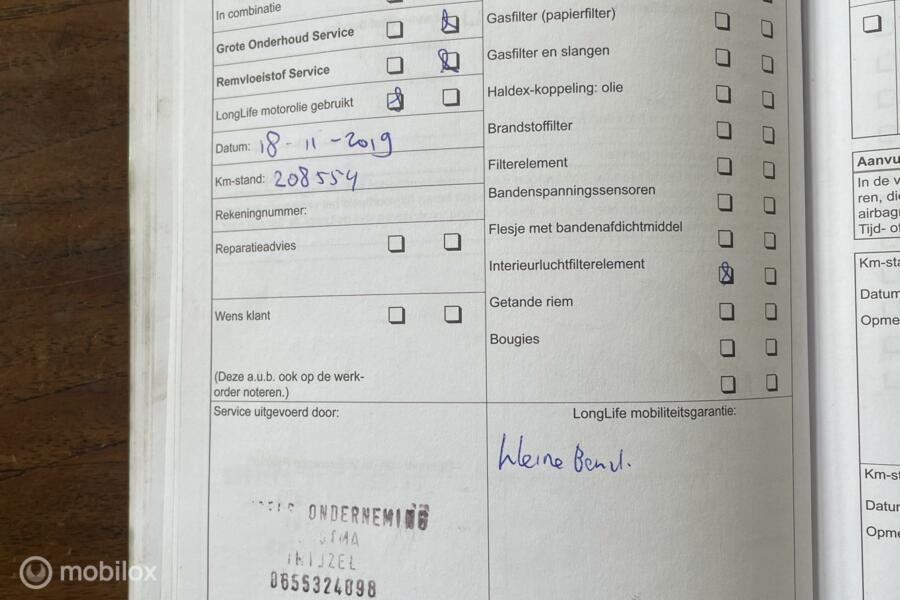 In combinatie
Grote Onderhoud Service
Remvloeistof Service
LongLife motorolie gebruikt
Datum: 18-11-2019
Km-stand: 208554
Rekeningnummer:
Reparatieadvies
Wens klant
(Deze a.u.b. ook op de werk-
order noteren.)
Service uitgevoerd door:
ONDERNEMING
0655324898
Gasfilter (papierfilter)
Gasfilter en slangen
Haldex-koppeling: olie
Brandstoffilter
Filterelement
Bandenspanningssensoren
Flesje met bandenafdichtmiddel
Interieurluchtfilterelement
Getande riem
Bougies
LongLife mobiliteitsgarantie:
kleine
Aanvu
In de v
ren, die
airbagr
Tijd- of
Km-sta
Datum
Opme
Km-st
Datur
Opme
mobilox